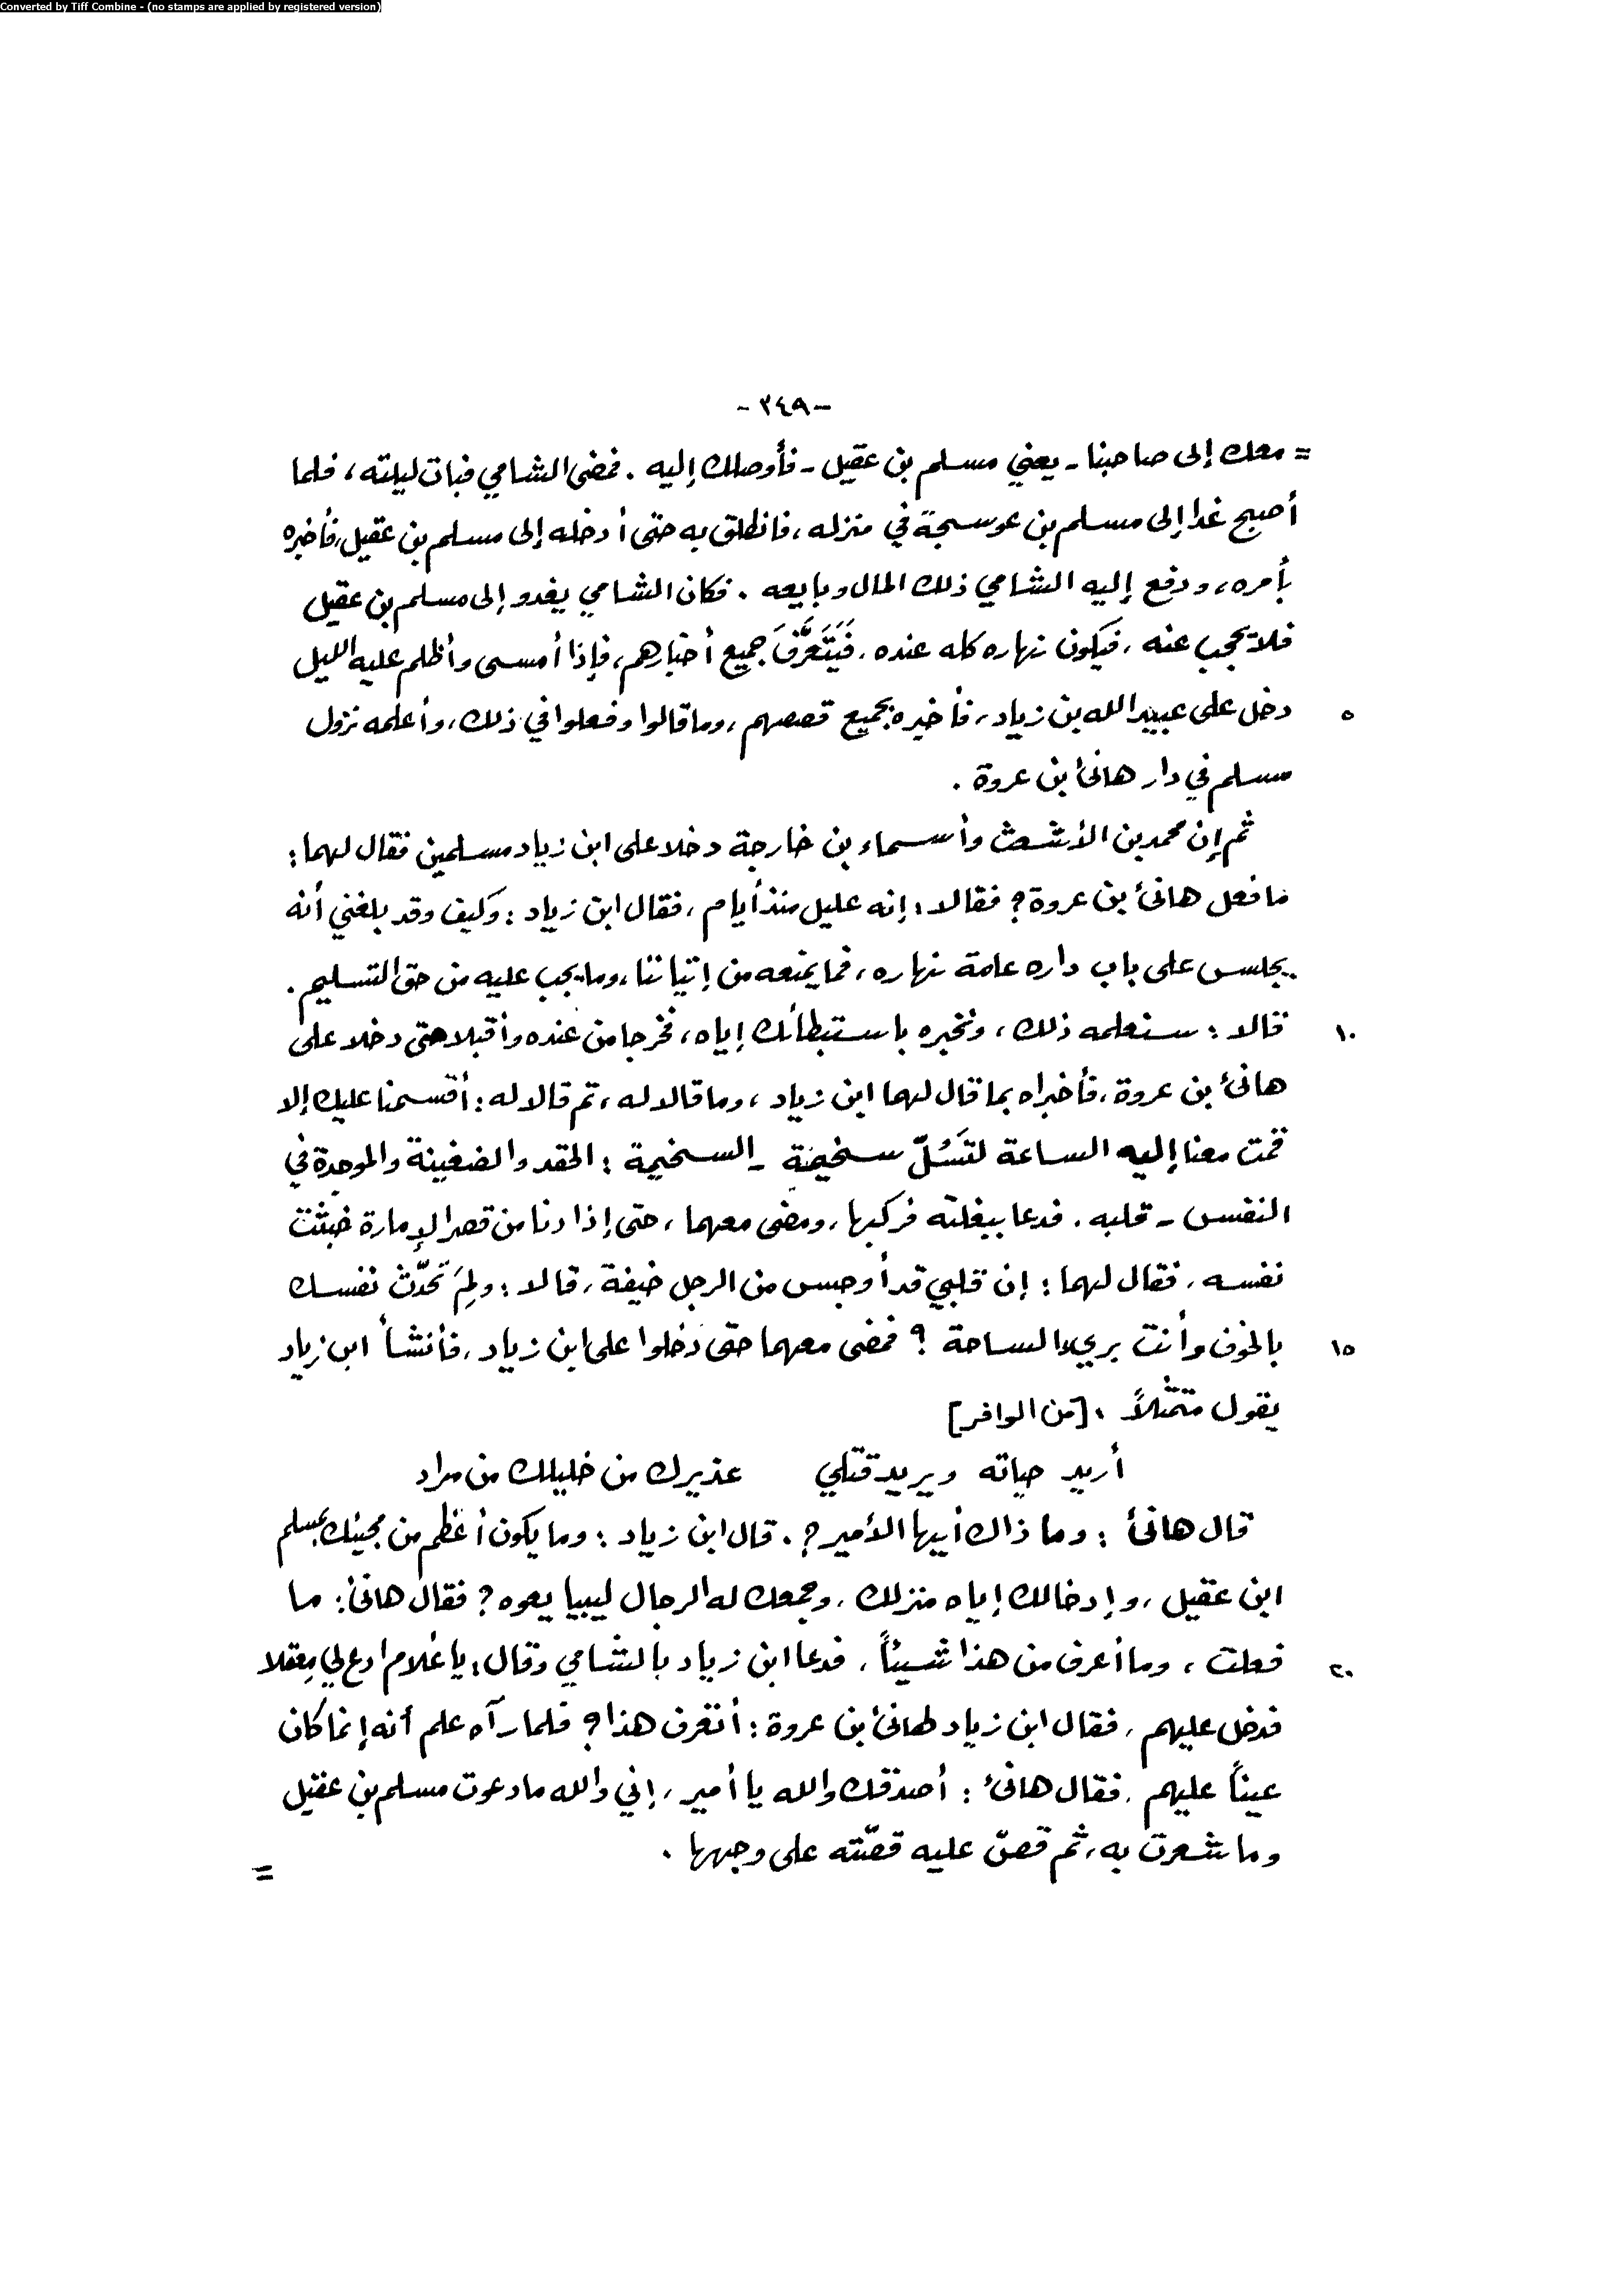 Converted by Tiff Combine - (no stamps are applied by registered version)
-٣٤٩-
= معك إلى صاحبنا - يعني مسلم بن عقيل - فأوصلك إليه . فمضى الشامي فبات ليلته ، فلما
أصبح غدا إلى مسلم بن عوسجة في منزله ، فانطلق به حتى أدخله إلى مسلم بن عقيل ، فأخبره
بأمره ، ودفع إليه الشامي ذلك المال وبايعه . فكان الشامي يغدو إلى مسلم بن عقيل
فلا يحجب عنه ، فيكون نهاره كله عنده ، فَيَتَعَرَّفَ جميع أخبارهم ، فإذا أمسى وأظلم عليه الليل
٥ دخل على عبيد الله بن زياد ، فأخبره بجميع قصصهم ، وما قالوا وفعلوا في ذلك ، وأعلمه نزول
مسلم في دار هانئ بن عروة .
ثم إن محمد بن الأشعث وأسماء بن خارجة دخلا على ابن زياد مسلمين فقال لهما :
ما فعل هانئ بن عروة ؟ فقالا : إنه عليل منذ أيام ، فقال ابن زياد : وكيف وقد بلغني أنه
يجلس على باب داره عامة نهاره ، فما يمنعه من إتياننا ، وما يجب عليه من حق التسليم .
١٠ قالا : سنعلمه ذلك ، ونخبره باستبطائك إياه ، فخرجا من عنده وأقبلا حتى دخلا على
هانئ بن عروة ، فأخبراه بما قال لهما ابن زياد ، وما قالا له ، ثم قالا له : أقسمنا عليك إلا
قمت معنا إليه الساعة لتَسُلّ سخيمة - السخيمة : الحقد والضغينة والموجدة في
النفس - قلبه . فدعا ببغلته فركبها ، ومضى معهما ، حتى إذا دنا من قصر الإمارة خبثت
نفسه ، فقال لهما : إن قلبي قد أوجس من الرجل خيفة ، قالا : ولِمَ تحدّث نفسك
١٥ بالخوف وأنت بريء الساحة ؟ فمضى معهما حتى دخلوا على ابن زياد ، فأنشأ ابن زياد
يقول متمثلاً : [من الوافر]
أريد حياته ويريد قتلي عذيرك من خليلك من مراد
قال هانئ : وما ذاك أيها الأمير ؟ . قال ابن زياد : وما يكون أعظم من مجيئك بمسلم
ابن عقيل ، وإدخالك إياه منزلك ، وجمعك له الرجال ليبايعوه ؟ فقال هانئ : ما
٢٠ فعلت ، وما أعرف من هذا شيئاً ، فدعا ابن زياد بالشامي وقال : يا غلام ادع لي مِعقلا
فدخل عليهم ، فقال ابن زياد لهانئ بن عروة : أتعرف هذا ؟ فلما رآه علم أنه إنما كان
عيناً عليهم ، فقال هانئ : أصدقك والله يا أمير ، إني والله ما دعوت مسلم بن عقيل
وما شعرت به ، ثم قصّ عليه قصّته على وجهها .
=